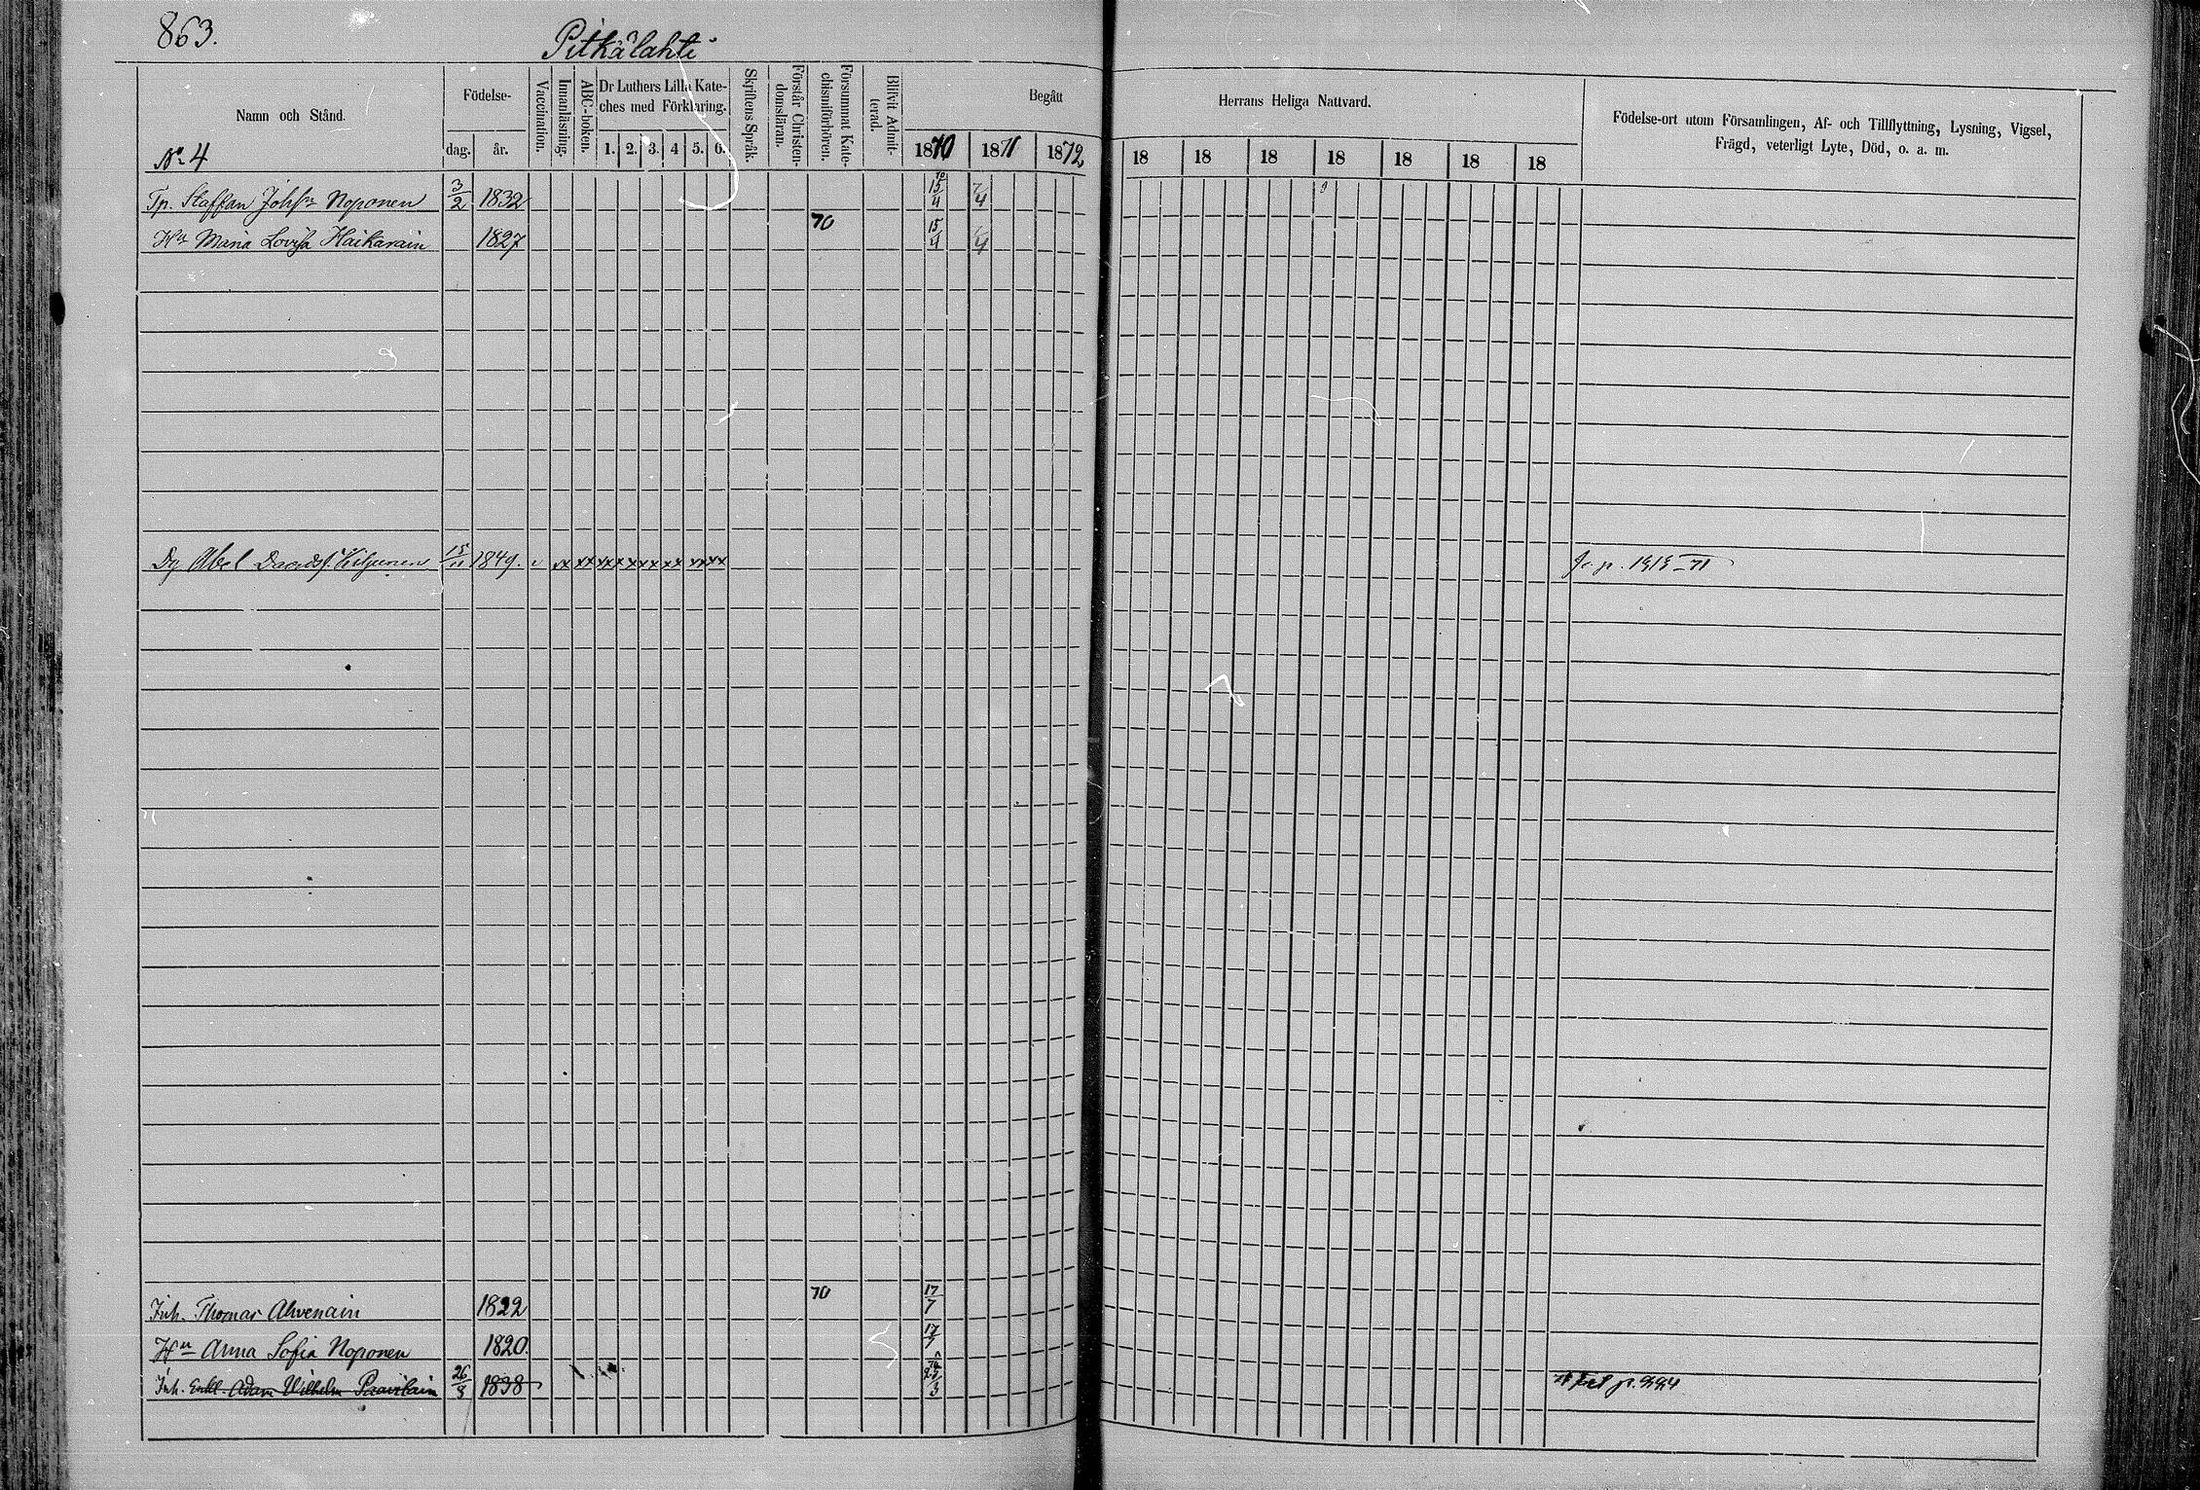 863.
Pitkälahti
Namn och Stånd.
Födelse-
dag. år.
Vaccination.
Innanläsning.
ABC-boken.
Dr Luthers Lilla Kate-
ches med Förklaring.
1. 2. 3. 4 5. 6.
Skriftens Språk.
Förstår Christen-
domsläran.
Försummat Kate-
chismiförhören.
Blifvit Admit-
terad.
Begått Herrans Heliga Nattvard.
1870 1871 1872 18 18 18 18 18 18 18
Födelse-ort utom Församlingen, Af- och Tillflyttning, Lysning, Vigsel,
Frägd, veterligt Lyte, Död, o. a. m.
No 4
Tp. Staffan Johsn Noponen 3/2 1832 15/4 7/4
Hu Maria Lovisa Haikarain 1827 70 15/4 4
Dg Abel Davidss. Kiljunen 15/11 1849. v xx xx xxx xxxx xx xx xx
Inh. Thomas Ahvenain 1822 70 17/7
Hu Anna Sofia Noponen 1820. 17/7
Inh. Enkl. Adam Vilhelm 26/8 1838 3
p. 994